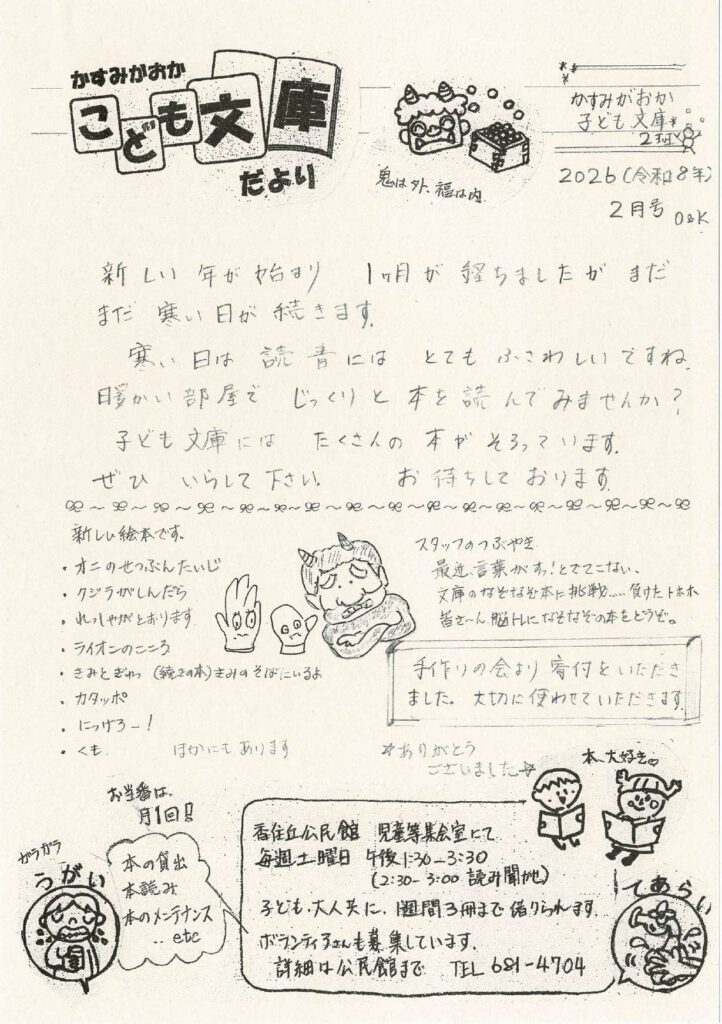 かすみがおか
こども文庫
だより
鬼は外、福は内
かすみがおか
子ども文庫
2班
2026(令和8年)
2月号 O&K
新しい年が始まり 1ヶ月が経ちましたが まだ
まだ 寒い日が続きます。
寒い日は 読書には とても ふさわしいですね。
暖かい部屋で じっくりと 本を読んでみませんか?
子ども文庫には たくさんの 本が そろっています。
ぜひ いらして下さい お待ちして おります。
新しい絵本です。
・オニのせつぶんたいじ
・クジラがしんだら
・れっしゃがとおります
・ライオンのこころ
・きみとぎゅっ (続きの本)きみのそばにいるよ
・カタッポ
・にっげろー!
・くも ほかにもあります
スタッフのつぶやき
最近、言葉がすっ!とでてこない、
文庫のなぞなぞ本に挑戦……負けたトホホ
皆さ〜ん 脳トレになぞなぞの本をどうぞ。
手作りの会より 寄付をいただき
ました。大切に使わせていただきます。
ありがとう
ございました
本、大好き
お当番は、
月1回!!
本の貸出
本読み
本のメンテナンス
‥etc
ガラガラ
うがい
香住丘公民館 児童等集会室にて
毎週土曜日 午後1:30-3:30
(2:30-3:00 読み聞かせ)
子ども・大人共に、1週間3冊まで借りられます。
ボランティアさんも募集しています。
詳細は公民館まで TEL 681-4704
てあらい